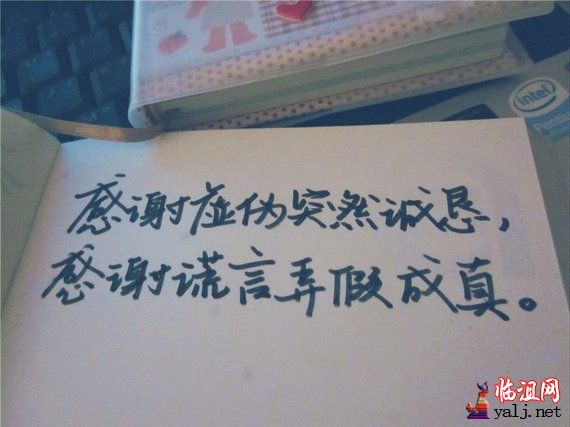 intel
Pentium
感谢虚伪突然诚恳，
感谢谎言弄假成真。
临沮网
yalj.net